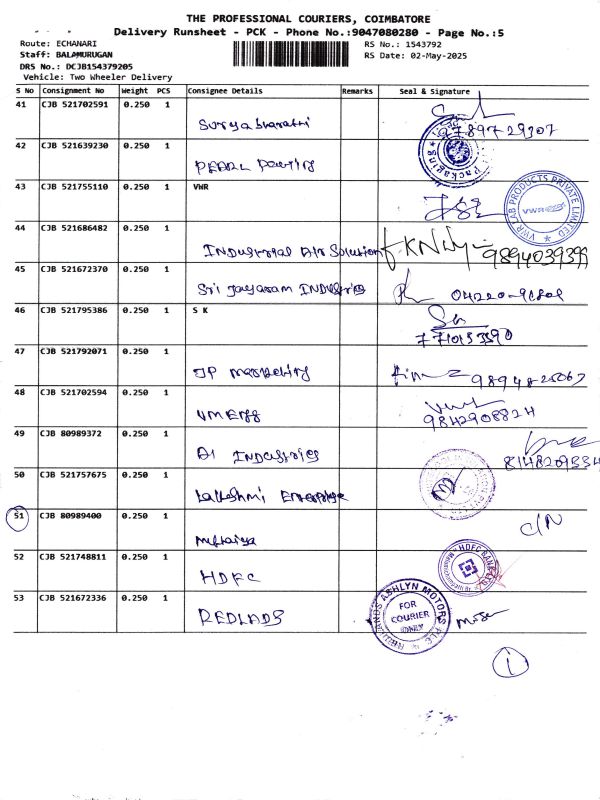 THE PROFESSIONAL COURIERS, COIMBATORE
Delivery Runsheet - PCK - Phone No.:9047080280 - Page No.:5
Route: ECHANARI
Staff: BALAMURUGAN
DRS No.: DCJB154379205
Vehicle: Two Wheeler Delivery
RS No.: 1543792
RS Date: 02-May-2025
S No Consignment No Weight PCS Consignee Details Remarks Seal & Signature
41 CJB 521702591 0.250 1
Suryabharathi
42 CJB 521639230 0.250 1
PEARL
Packaging
43 CJB 521755110 0.250 1 VWR
VWR LAB PRODUCTS PRIVATE LIMITED
VWR
44 CJB 521686482 0.250 1
INDUSTRIAL AIR Solution 9894039399
45 CJB 521672370 0.250 1
Sri Jayaram INDUStries
46 CJB 521795386 0.250 1 S K
47 CJB 521792071 0.250 1
JP marketing
48 CJB 521702594 0.250 1
VM Engg 9842908824
49 CJB 80989372 0.250 1
INDUStries
50 CJB 521757675 0.250 1
Lakshmi Enterprise
51 CJB 80989400 0.250 1
C/N
52 CJB 521748811 0.250 1
HDFC
HDFC BANK
53 CJB 521672336 0.250 1
REDLADS
ASHLYN MOTORS
FOR
COURIER
ONLY
1